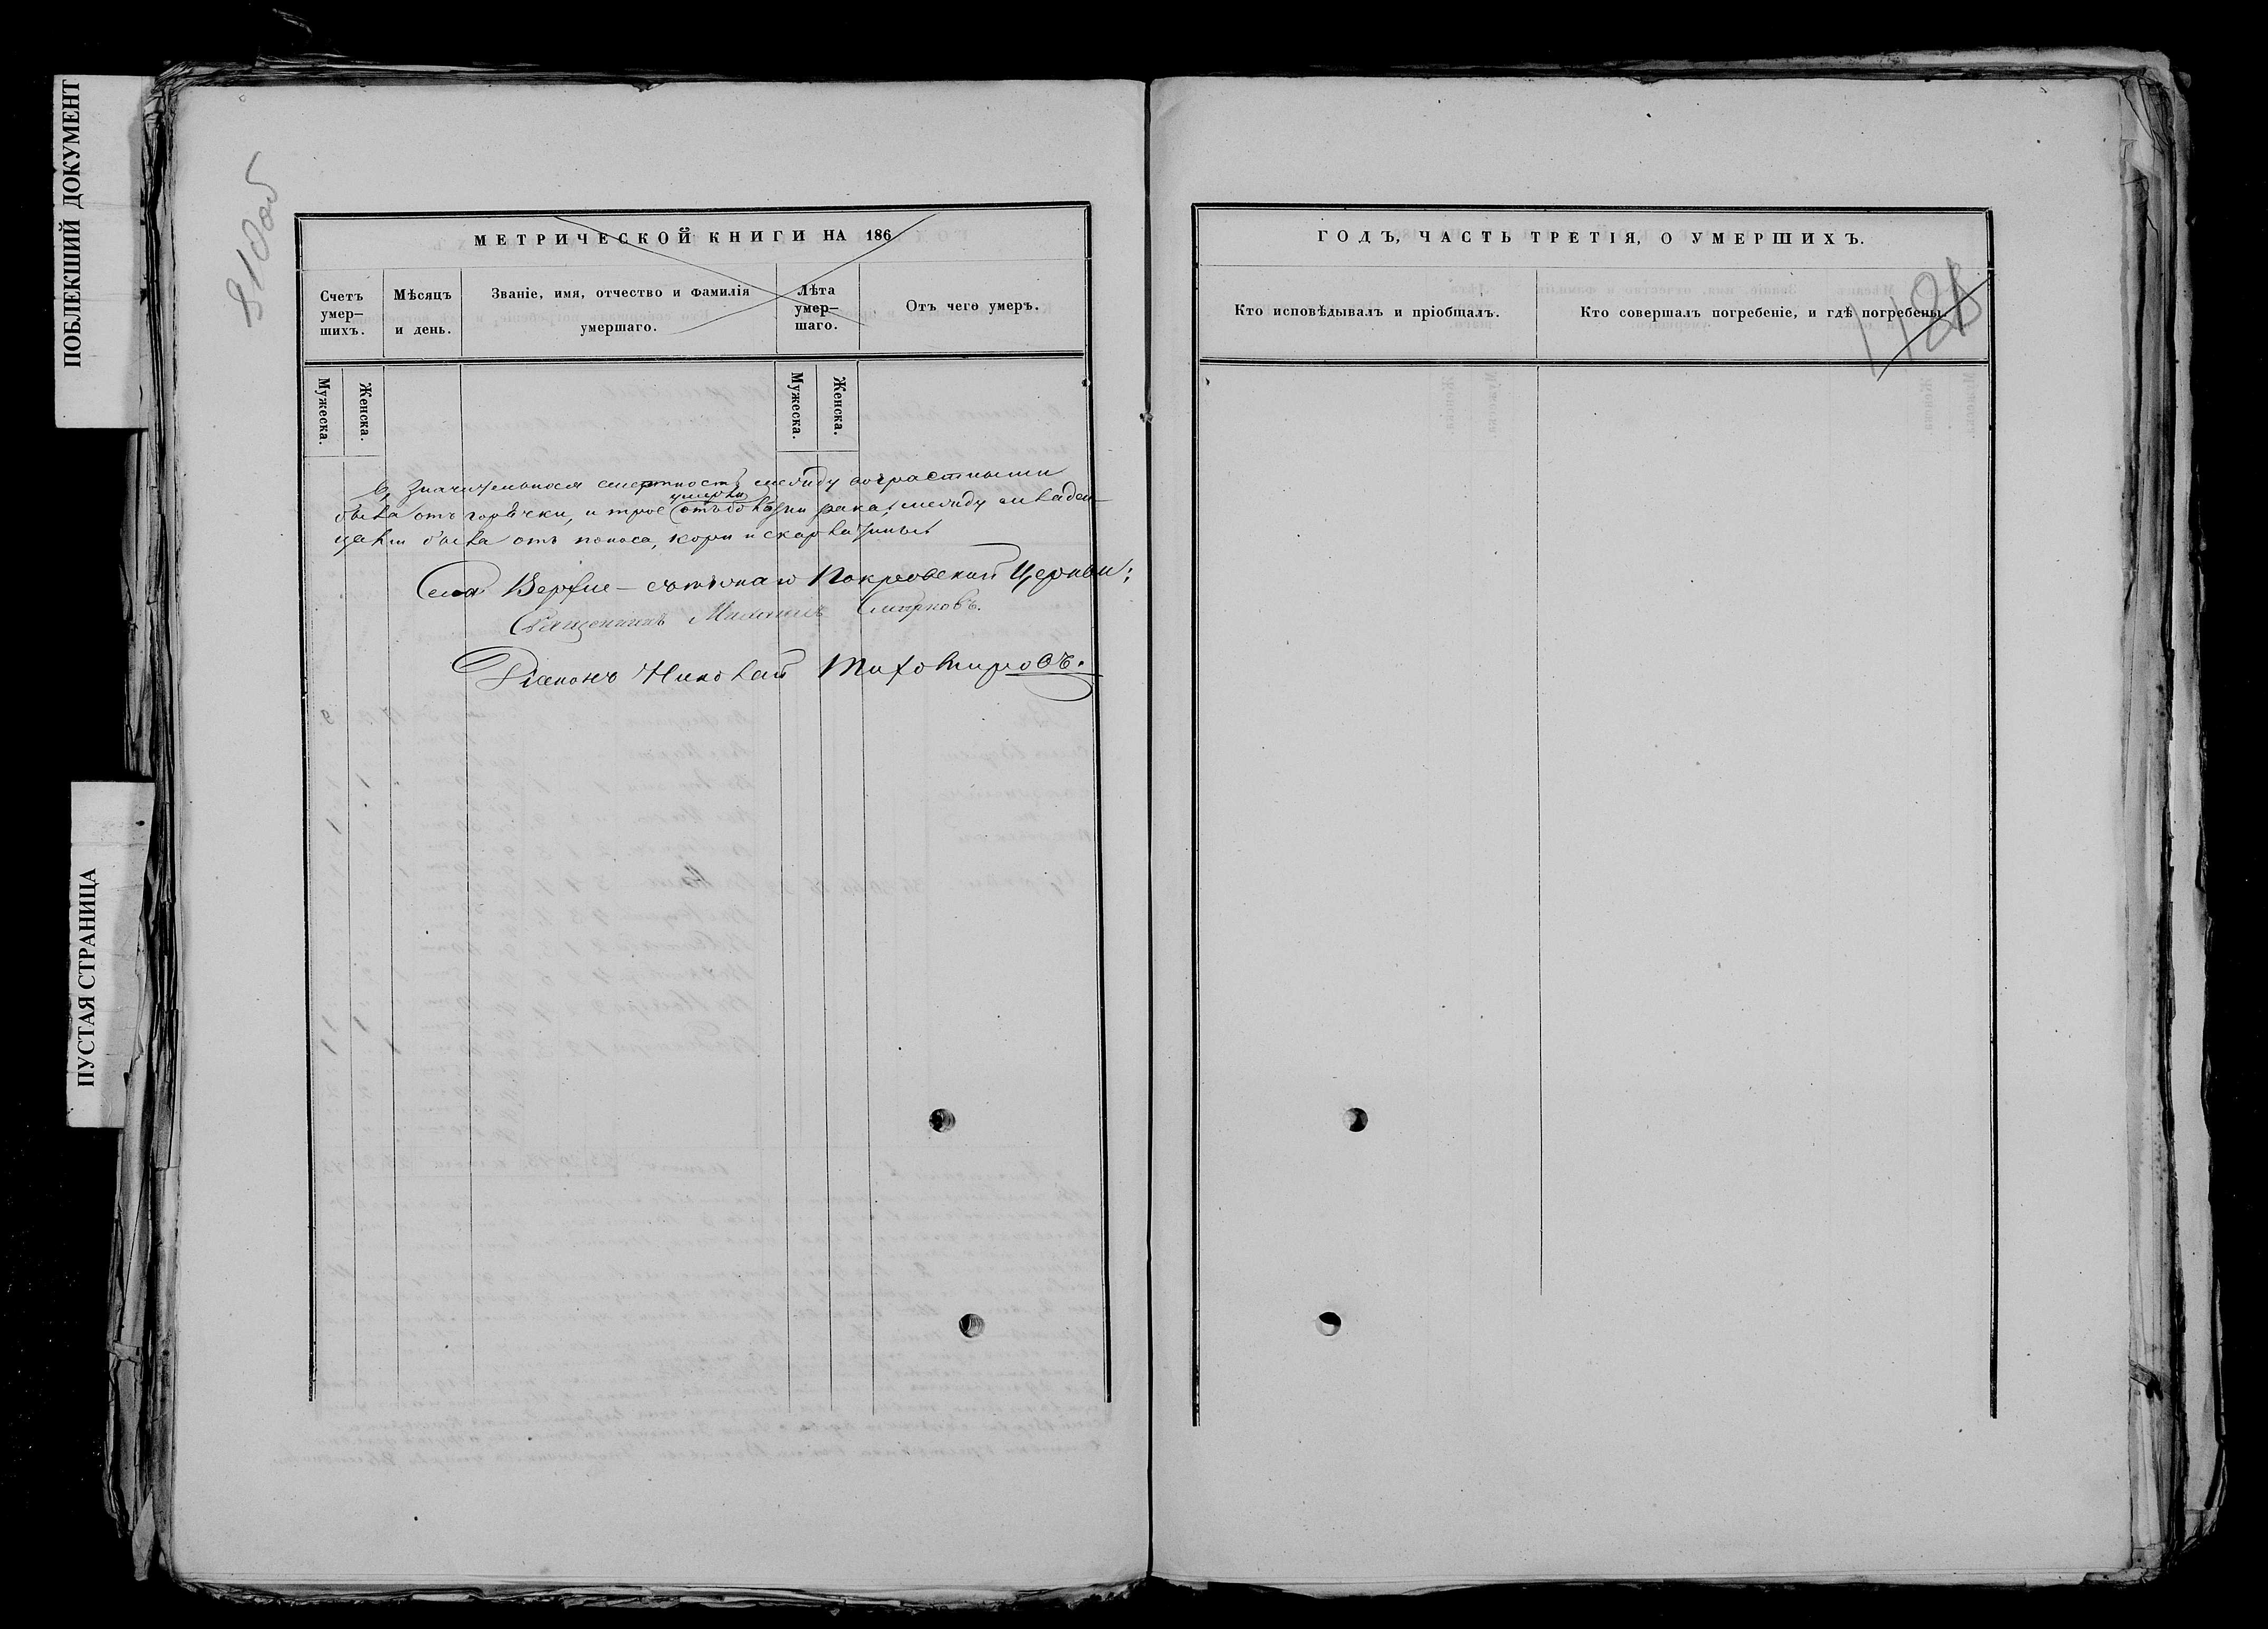 ПОБЛЕКШИЙ ДОКУМЕНТ
ПУСТАЯ СТРАНИЦА
810об
МЕТРИЧЕСКОЙ КНИГИ НА 186
Счетъ умер-шихъ.
Мѣсяцъ и день.
Званіе, имя, отчество и фамилія умершаго.
Лѣта умер-шаго.
Отъ чего умеръ.
Мужеска.
Женска.
Мужеска.
Женска.
Значительная смертность между возрастными
была отъ горячки, и трое умерли отъ болѣзни рака, между младен-
цами была отъ поноса, кори и скарлатины
Села Верхне- Покровской Церкви:
Священникъ Смирновъ.
Діаконъ Николай Тихомировъ.
ГОДЪ, ЧАСТЬ ТРЕТІЯ, О УМЕРШИХЪ.
Кто исповѣдывалъ и пріобщалъ.
Кто совершалъ погребеніе, и гдѣ погребены.